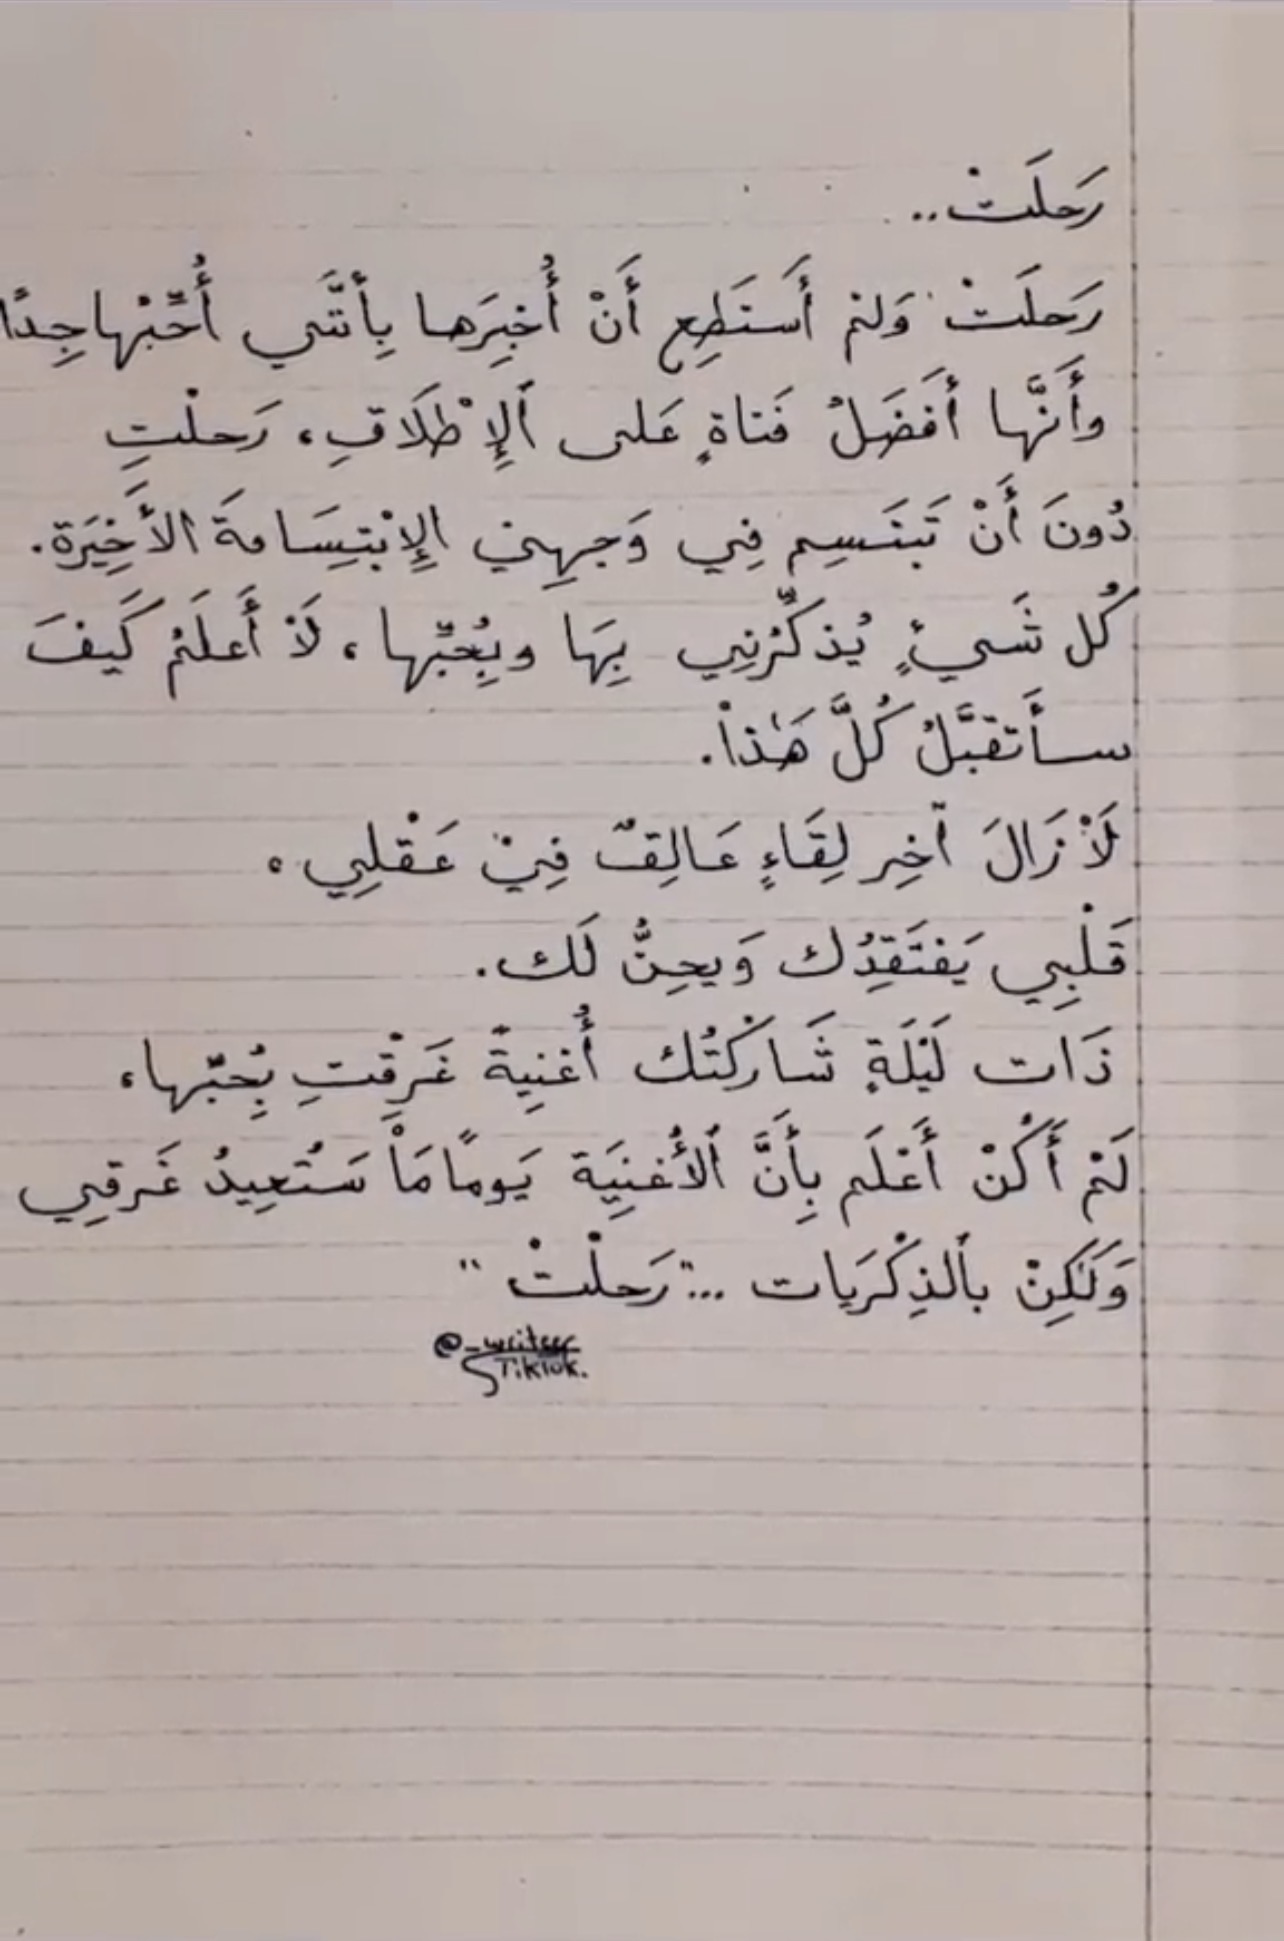 رَحلَتْ..
رَحلَتْ وَلمْ أَستَطِع أَنْ أُخبِرَها بِأنَّني أُحِّبْها جِدًا
وأَنَّها أفَضَلُ فَتاةٍ عَلى ألإِطْلَاقِ، رَحلْتِ
دُونَ أَنْ تَبتَسِم فِي وَجهِيْ الإِبْتِسَامةَ الأخَِيَرة.
كُل شَيءٍ يُذكِّرْنِي بِهَا وبِحُبِّها، لَا أَعلَمْ كَيفَ
سأَتقبَّلُ كُلَّ هَذاْ.
لَاْزَالَ آخِر لِقَاءٍ عَالِقٌ فِيْ عَقْلِي،
قَلْبِي يَفتَقِدُك وَيحِنُّ لَك.
ذَات لَيْلَةٍ شَاركْتُك أُغنِيةً غَرِقْتِ بِحُبّها،
لَمْ أَكُنْ أَعْلَم بِأَنَّ ألأُغنِيَة يَومًا مَاْ سَتُعِيدُ غَرقِي
وَلَكِنْ بألذِكْرَيات ..."رَحلْتْ"
@_writeer
Tiktok.